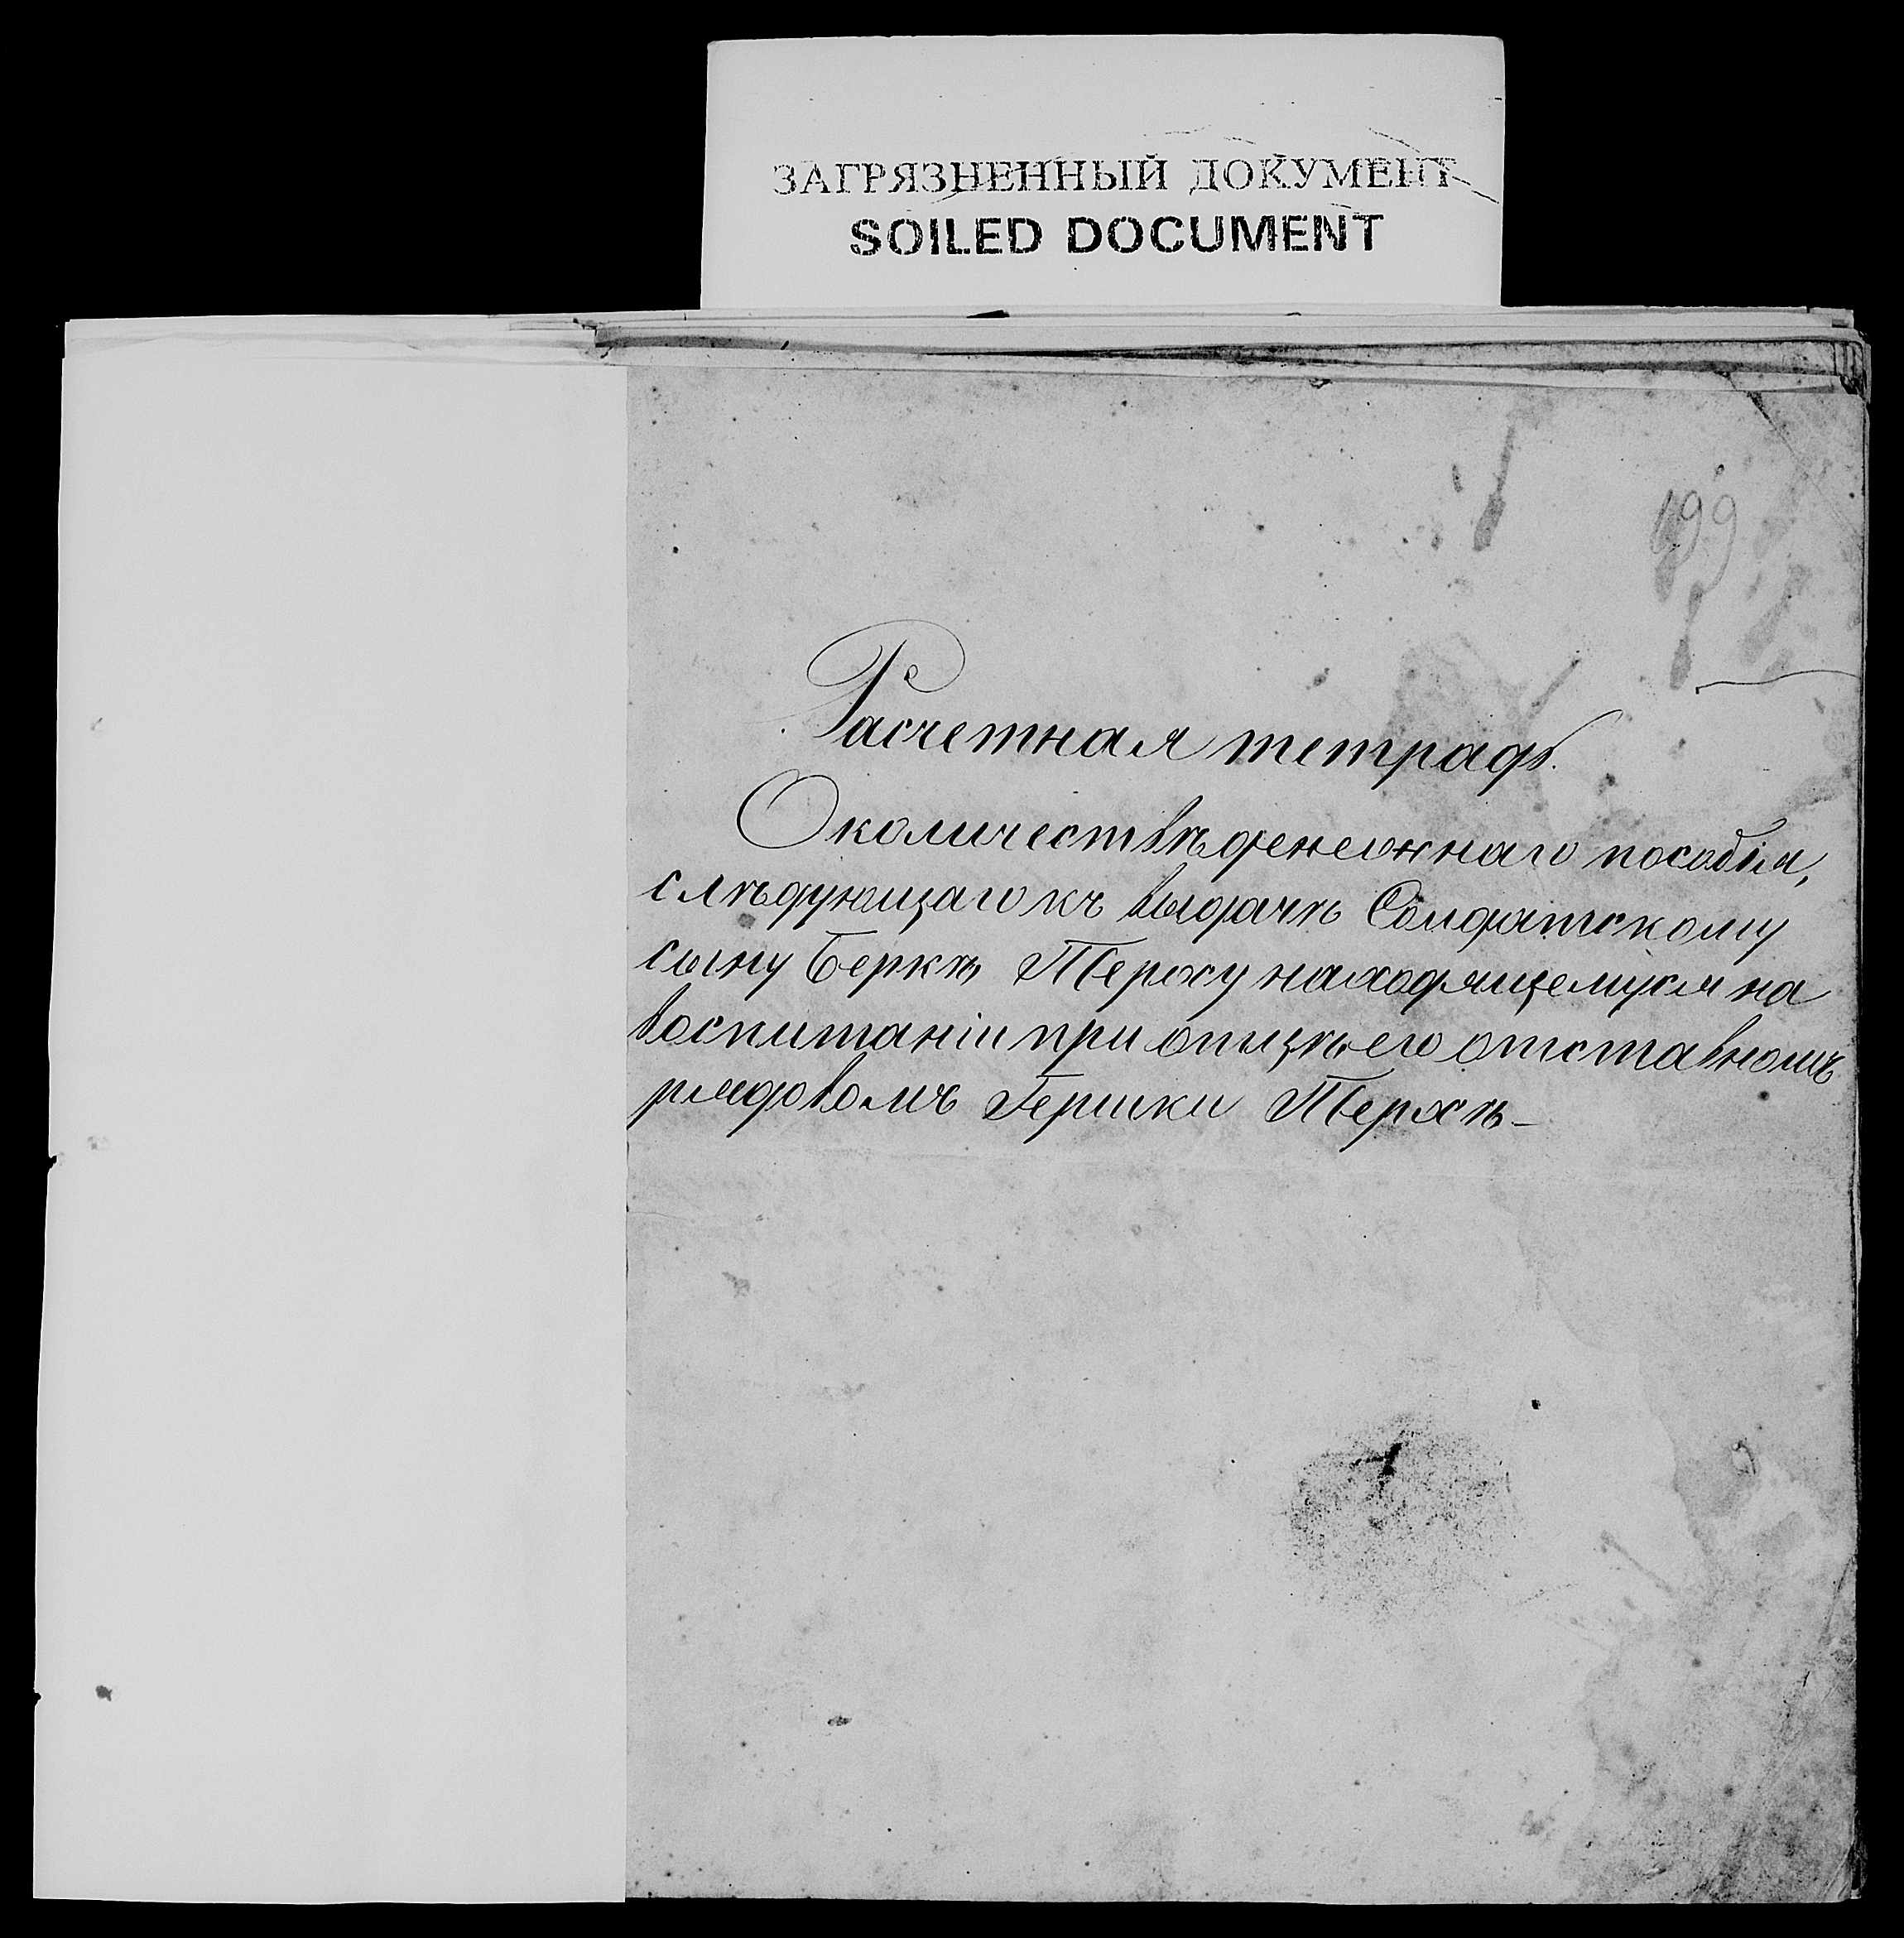 ЗАГРЯЗНЕННЫЙ ДОКУМЕНТ
SOILED DOCUMENT
199
Расчетная тетрадь.
О количествѣ денежнаго пособія,
слѣдующаго къ выдачѣ Солдатскому
сыну Беркѣ Перху находящемуся на
воспитаніи при отцѣ его отставномъ
рядовомъ Гершки Перхѣ